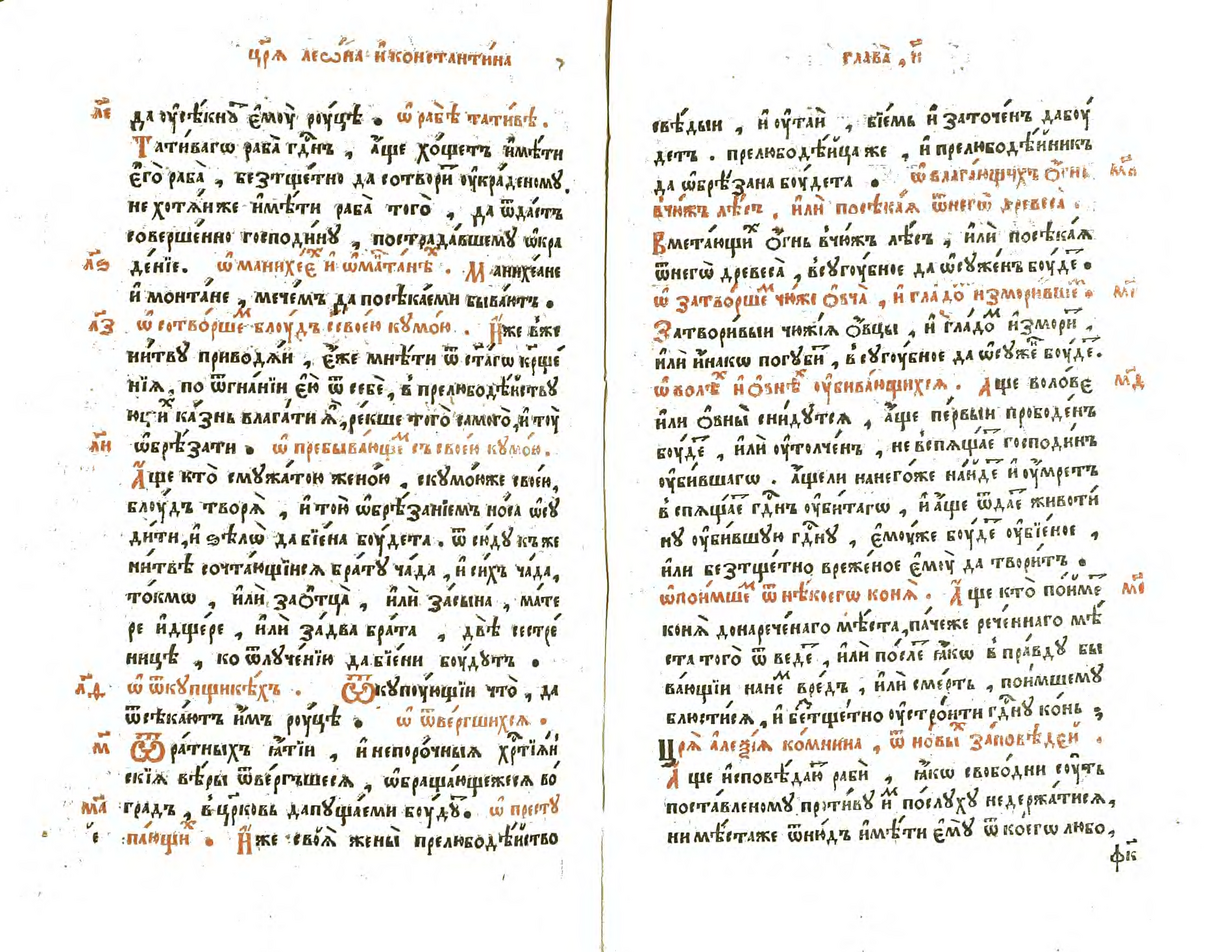 цр҃ѧ леѡ́на и҆ константи́на
л҃е
да ᲂу҆сѣкнꙋ̑т є҆моꙋ̀ рꙋ́цѣ . ѡ҆ рабѣ̀ тати́вѣ .
Тати́вагѡ раба̀ гдⷭ҇нъ , а҆́ще хо́щетъ и҆мѣ́ти
є҆го̀ раба̀ , безтще́тно да сотвори́т ᲂу҆кра́деномꙋ .
не хотѧ́и же и҆мѣ́ти раба̀ того̀ , да ѿда́стъ
соверше́нно господи́нꙋ , пострада́вшемꙋ ѡ҆кра
л҃ѕ
де́нїе . ѡ҆ манихе́ех и҆ ѡ҆ манта́нѣх . Манихе́ане
и҆ монта́не , мече́мъ да посѣка́еми быва́ютъ .
л҃з
ѡ҆ сотво́ршем блоу́дъ съ свое́ю кꙋмо́ю . И҆́же в же
ни́твꙋ приводѧ́и , є҆́же мнѣ́ти ѿ ст҃а́гѡ крⷭ҇ще
нїѧ , по ѿгна́нїи є҆ю̀ ѿ себѐ , в прелюбодѣ́йствꙋ
ющих ка́знь влага́ти ѧ҆̀ , ре́кше того̀ самого , и҆ тоу́
л҃и
ѡ҆брѣ́зати . ѡ҆ пребыва́ющем съ свое́ю кꙋмо́ю .
А҆́ще кто̀ с мꙋжа́тою жено́ю , с кꙋмо́ю же свое́ю ,
блоу́дъ творѧ̀ , и҆ то́и ѡ҆брѣ́занїемъ но́са ѡ҆сꙋ
ди́ти , и҆ ѕѣлѡ̀ да бїе́на боу́дета . ѿ сю́дꙋ къ же
ни́твѣ сочта́ющїисѧ бра́тꙋ ча́да , и҆ си́хъ ча́да ,
то́кмѡ , и҆лѝ за ѻ҆тца̀ , и҆лѝ за сы́на , ма́те
ре и҆ дще́ре , и҆лѝ за́ два бра́та , двѣ̀ сестре́
ницѣ , ко ѿлꙋче́нїю да бїе́ни боу́дꙋтъ .
л҃ѳ
ѡ҆ ѿкꙋпщикѣ́хъ . Ѿкꙋпоу́ющїи что̀ , да
ѿсѣка́ютъ и҆́мъ роу́цѣ . ѡ҆ ѿве́ргшихсѧ .
м҃
Ѿ ра́тныхъ ꙗ҆́тїи , и҆ непоро́чныѧ хрⷭ҇тїѧ́н
скїѧ вѣ́ры ѿве́ргъшесѧ , ѡ҆браща́ющежесѧ во́
м҃а
гра́дъ , в цр҃ковь да пꙋща́еми боу́дꙋ . ѡ҆ престꙋ
па́ющих . И҆́же своѧ̀ жены̀ прелюбодѣ́йство

глава̀ , и҃
свѣ́дыи , и҆ ᲂу҆таи́ , бїе́мь и҆ заточе́нъ да боу́
детъ . прелюбодѣ́ица же , и҆ прелюбодѣ́йникъ
м҃в
да ѡ҆брѣ́зана боу́дета . ѡ҆ влага́ющих ѻ҆́гнь
в чю́жъ лѣ́съ , и҆лѝ посѣка́ѧ ѿ него̀ древеса̀ .
Вмета́ющих ѻ҆́гнь в чю́жъ лѣ́съ , и҆лѝ посѣка́ѧ
ѿ негѡ̀ древеса̀ , в сꙋгоу́бное да ѡ҆сꙋже́нъ боу́де .
м҃г
ѡ҆ затво́ршем чю́же ѻ҆вча̀ , и҆ гла́дом и҆змори́вшем .
Затвори́выи чю́жїѧ ѻ҆́вцы , и҆ гла́дом и҆змори́т ,
и҆лѝ и҆на́кѡ погꙋби́т , в сꙋгоу́бное да ѡ҆сꙋже́н боу́де .
м҃д
ѡ҆ волѣ́х и҆ ѻ҆внѣ́х ᲂу҆бива́ющихсѧ . А҆ще воло́ве
и҆ли ѻ҆вны̀ сни́дꙋтсѧ , а҆́ще пе́рвыи прободе́нъ
боу́де , и҆лѝ ᲂу҆толче́нъ , не в спѧща́е господи́нъ
ᲂу҆би́вшагѡ . а҆́ще ли на него́же на́иде и҆ ᲂу҆́мретъ
в спѧща́е гдⷭ҇нъ ᲂу҆би́тагѡ , и҆ а҆́ще ѿда́е животи́
нꙋ ᲂу҆би́вшꙋю гдⷭ҇нꙋ , є҆моу́же боу́де ᲂу҆бїе́ное ,
и҆лѝ безтще́тно вреже́ное є҆моу̀ да твори́тъ .
м҃е
ѡ҆ пои́мшем ѿ нѣ́коегѡ конѧ̀ . А҆́ще кто̀ пои́ме
конѧ̀ до нарече́наго мѣ́ста , па́че же рече́ннаго мѣ́
ста того̀ ѿведе́ , и҆лѝ по́сле ꙗ҆́кѡ в пра́вдꙋ бы
ва́ющїи на не́м вре́дъ , и҆лѝ сме́рть , пои́мшемꙋ
блюсти́сѧ , и҆ бестще́тно ᲂу҆стро́ити гдⷭ҇нꙋ ко́нь ;
Цр҃ѧ̀ а҆леѯі́ѧ ко́мнина , ѿ но́вых за́повѣдей .
А҆́ще и҆сповѣ́даю рабѝ , ꙗ҆́кѡ свобо́дни соу́ть
поста́вленомꙋ проти́вꙋ и҆́м по́слꙋхꙋ не держа́тисѧ ,
ни мѣ́стаже ѿню́дъ и҆мѣ́ти є҆мꙋ̀ ѿ коегѡ лю́бо ,
ф҃к